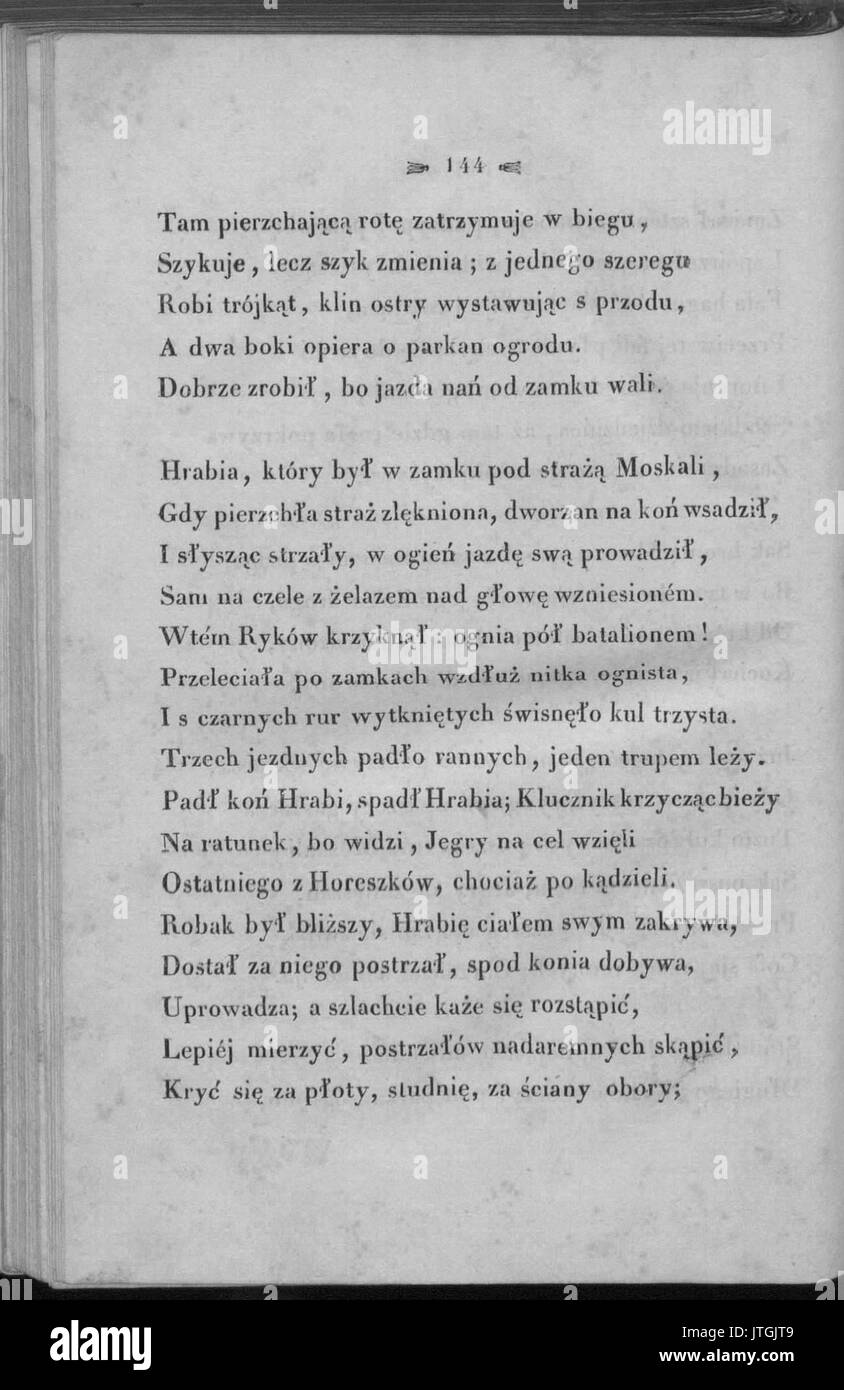 144
Tam pierzchającą rotę zatrzymuje w biegu,
Szykuje, lecz szyk zmienia; z jednego szeregu
Robi trójkąt, klin ostry wystawując s przodu,
A dwa boki opiera o parkan ogrodu.
Dobrze zrobił, bo jazda nań od zamku wali.
Hrabia, który był w zamku pod strażą Moskali,
Gdy pierzchła straż zlękniona, dworzan na koń wsadził,
I słysząc strzały, w ogień jazdę swą prowadził,
Sam na czele z żelazem nad głowę wzniesioném.
Wtém Ryków krzyknął: ognia pół batalionem!
Przeleciała po zamkach wzdłuż nitka ognista,
I s czarnych rur wytkniętych świsnęło kul trzysta.
Trzech jezdnych padło rannych, jeden trupem leży.
Padł koń Hrabi, spadł Hrabia; Klucznik krzycząc bieży
Na ratunek, bo widzi, Jegry na cel wzięli
Ostatniego z Horeszków, chociaż po kądzieli.
Robak był bliższy, Hrabię ciałem swym zakrywa,
Dostał za niego postrzał, spod konia dobywa,
Uprowadza; a szlachcie każe się rozstąpić,
Lepiéj mierzyć, postrzałów nadaremnych skąpić,
Kryć się za płoty, studnię, za ściany obory;
a alamy
alamy stock photo
JTGJT9
www.alamy.com